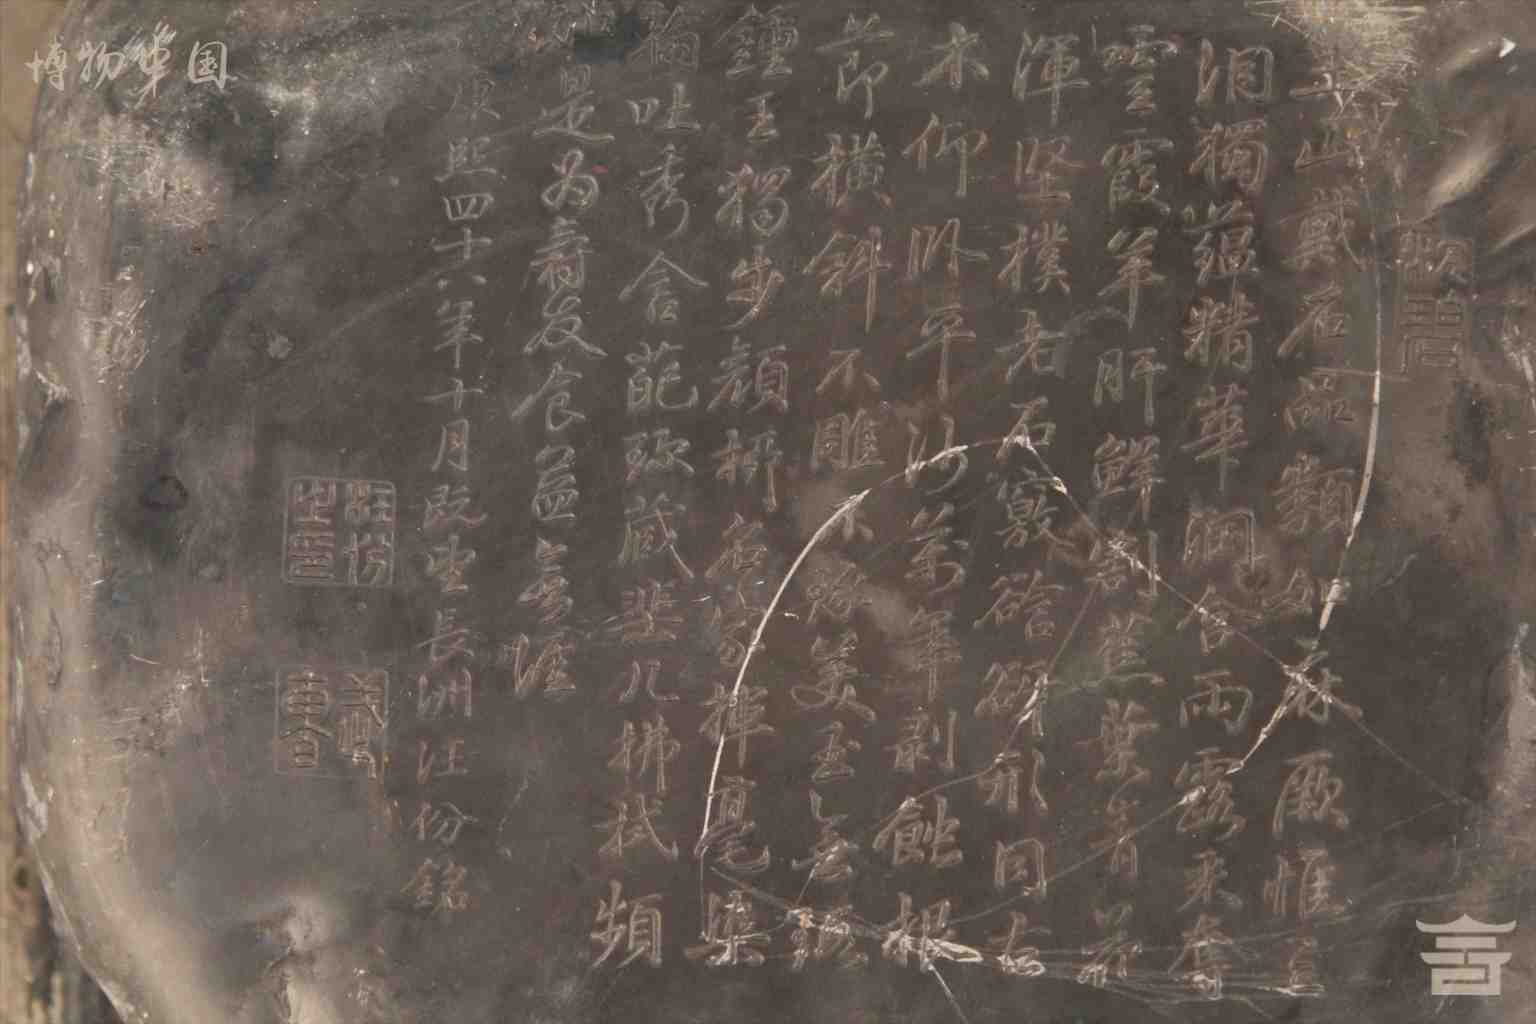 博物中国
山戴石品類如林厥惟
洞獨蘊精華润含雨露采奪
雲霞羊肝鮮割蕉葉青
渾堅樸老石蒙磨研形同古
木仰卧平沙萬年剥蝕根
節橫斜不雕不琢美玉無瑕
鍾王獨步顏柳名家揮毫染
翰吐秀含葩珍藏棐几拂拭頻
是為壽友食益無涯
康熙四十六年十月既望長洲汪份銘
汪份